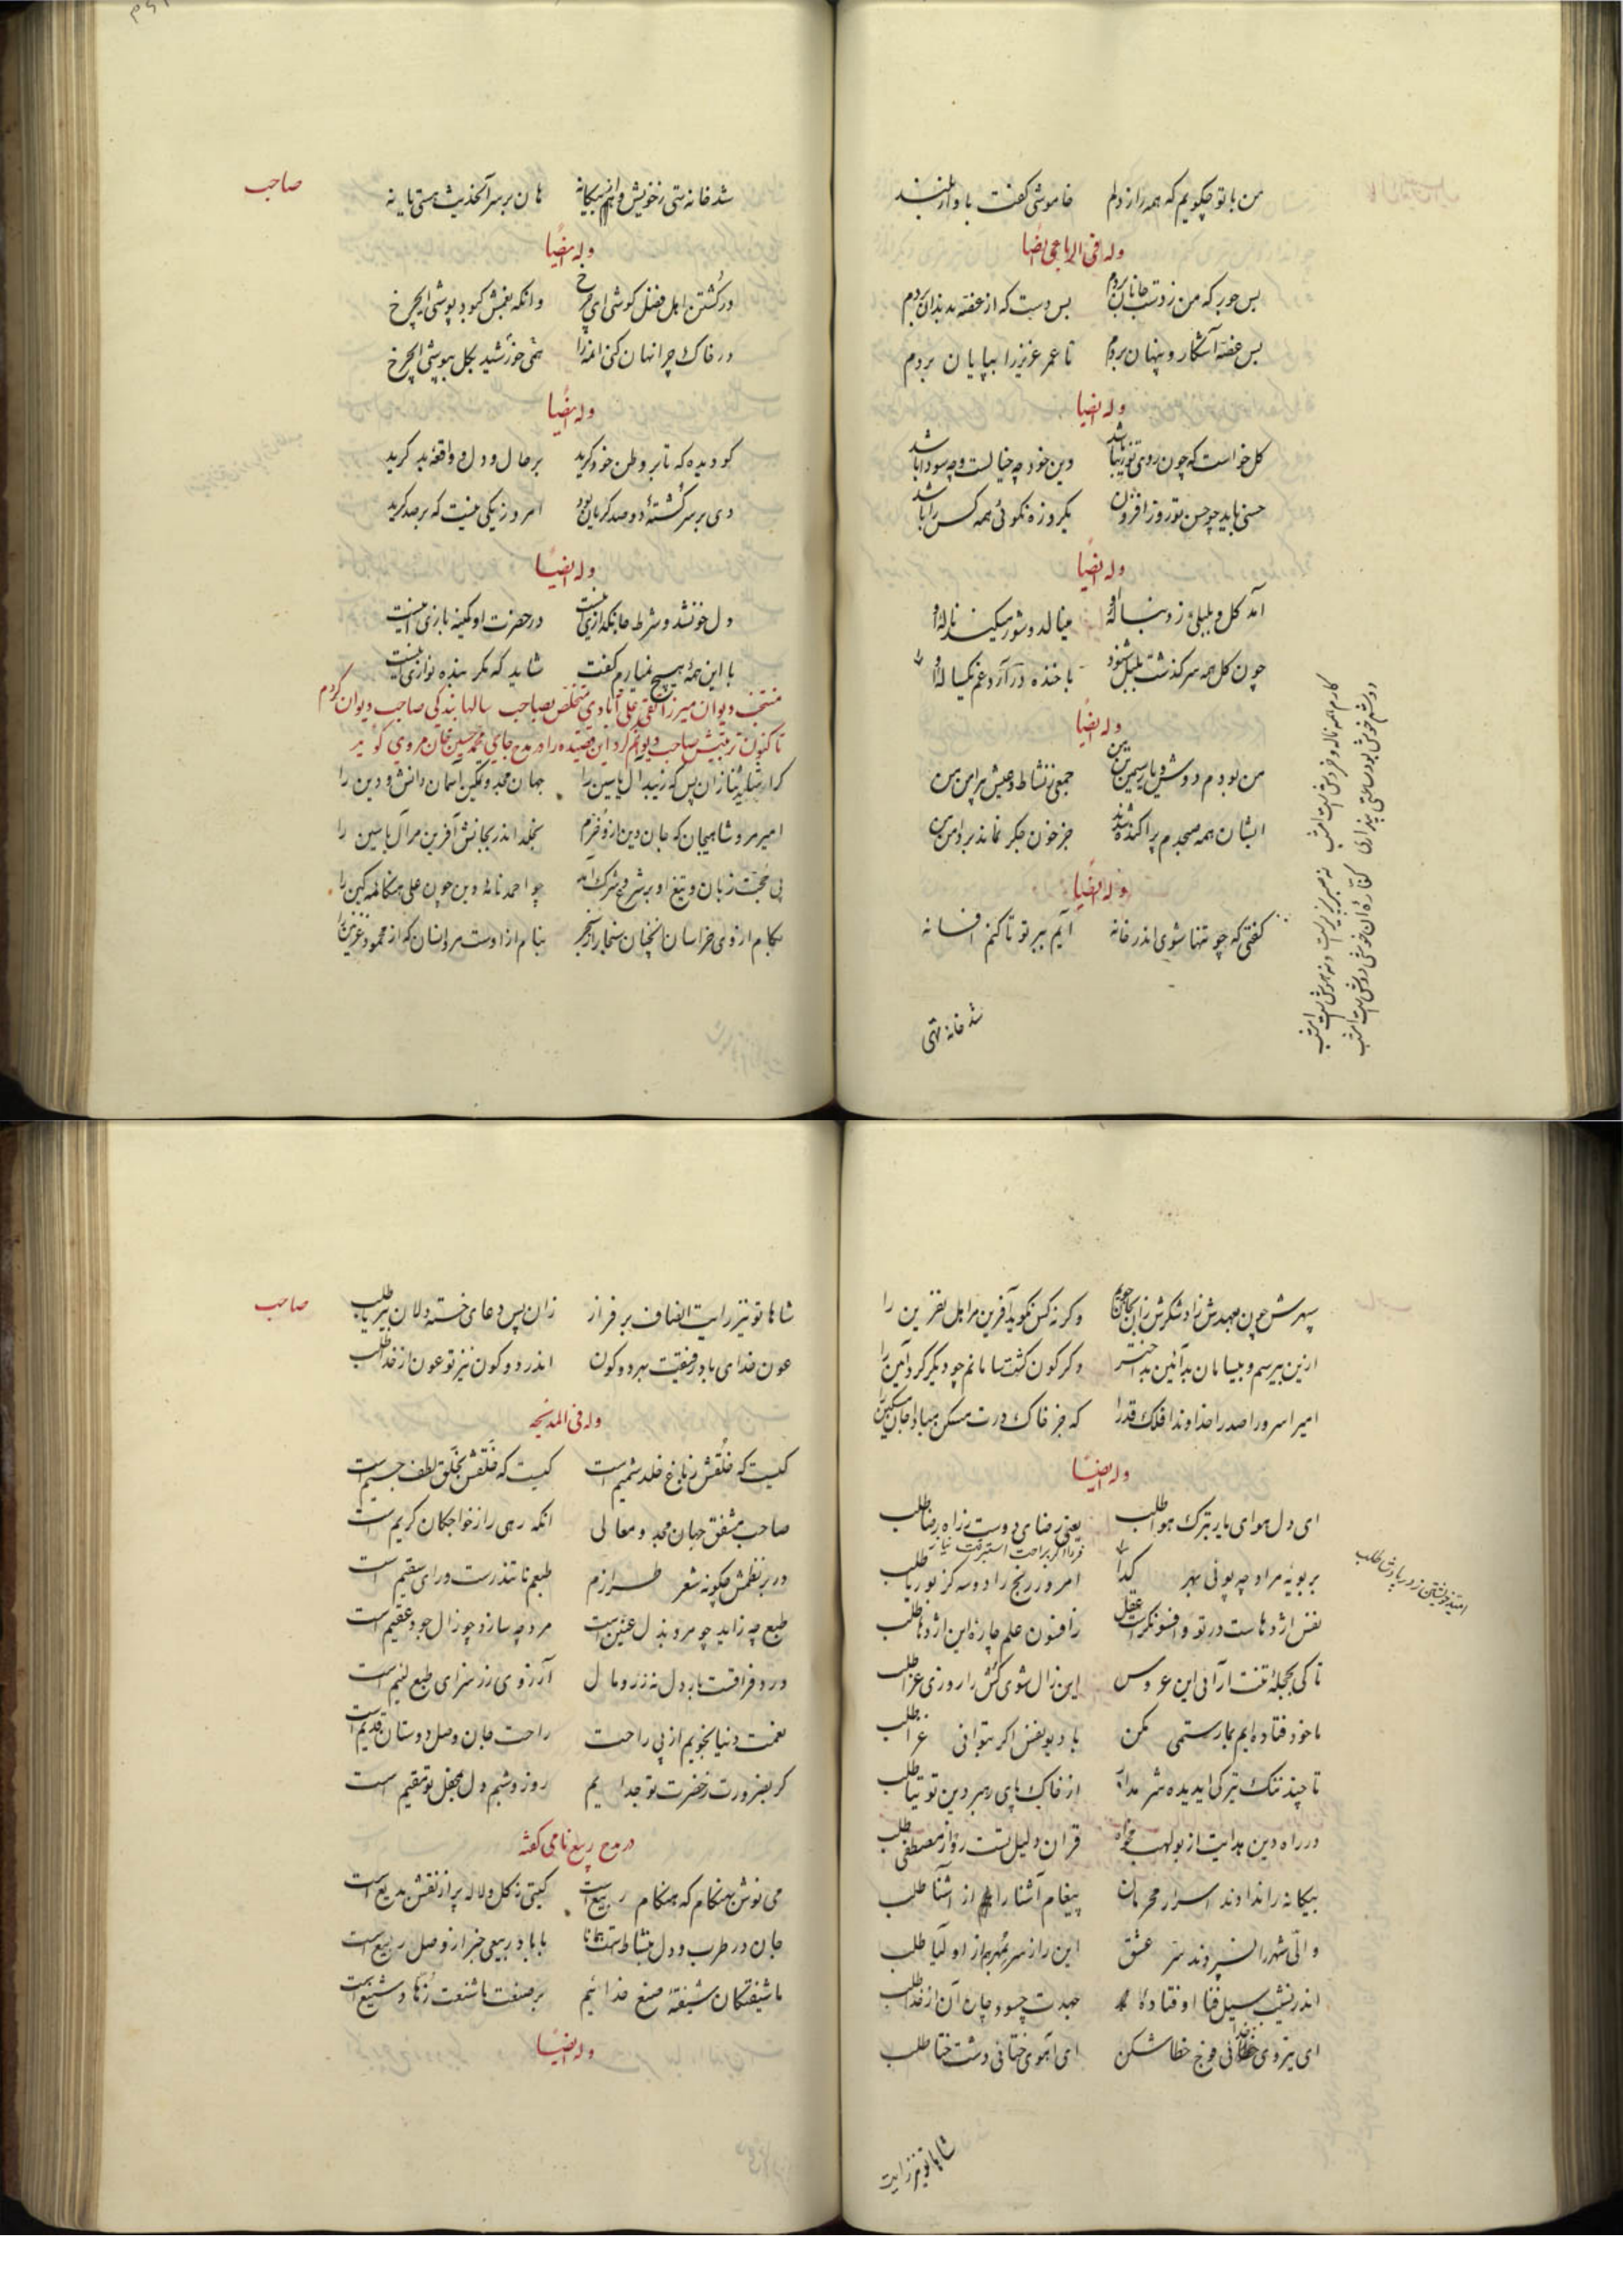 من با تو چگویم که همه راز دلم خاموشی گفت باواز بلند
وله فی الرباعی ایضا
بس جور که من ز دست جانان بردم بس دست که از غصه بدندان بردم
بس غصه آشکار و پنهان بردم تا عمر عزیز را بپایان بردم
وله ایضا
کل خواست که چون روی تو زیبا باشد وین خود چه خیالست و چه سودا باشد
حسنی باید چو حسن تو روز افزون یکروزه نکوئی همه کس را باشد
وله ایضا
آمد کل و بلبلی ز دنباله او مینالد و شور میکند ناله او
چون کل همه سرگذشت بلبل شنود با خنده در آرد غم یکساله او
وله ایضا
من بودم دوش و یار سیمین تن من جمعی ز نشاط و عیش پیرامن من
ایشان همه صبحدم پراکنده شدند جز خون جگر نماند بر دامن من
وله ایضا
گفتی که چو تنها شوی اندر خانه آیم بر تو تا کنم افسانه
کارم همه ناله و خروش است امشب نه صبر پدید است و نه هوش است امشب
دوشم خوش بود ساعتی پنداری کفاره آن خوشی دوش است امشب
شد خانه تهی
صاحب
شد خانه تهی ز خویش و از بیگانه هان بر سر آنحدیث هستی یا نه
وله ایضا
در کشتن اهل فضل کوشی ای چرخ وانگه بغمش کبود پوشی ایچرخ
در خاک چرا نهان کنی آنمه را هی خورشید بکل بپوشی ایچرخ
وله ایضا
کو دیده که تا بر وطن خود گرید بر حال و دل و واقعه بد گرید
دی بر سر کشته دو صد گریان بود امروز یکی نیست که بر صد گرید
وله ایضا
دل خون شد و شرط جانگدازی اینست در حضرت او کمینه بازی اینست
با این همه هیچ نمی‌یارم گفت شاید که مگر بنده نوازی اینست
منتخب دیوان میرزا تقی علی آبادی متخلص بصاحب سالها بندگی صاحب دیوان کردم
تا کنون تربیتش صاحب دیوانم کرد این قصیده را در مدح حاجی محمد حسین خان مروی گوید
کرا شاید ثنا زان پس که زیبد آل یاسین را جهان مجد و تمکین آسمان دانش و دین را
امیر مرو شاهیجان که جان دین ازو خرم بخلد اندر بجانش آفرین مر آل یاسین را
پی حجت زبان و تیغ او بر شرع و شرک آمد چو احمد نامه دین چون علی هنگامه کین را
بکام از وی خراسان آنچنان سنجار از سنجر بنام از اوست مر ایشان که از محمود غزنین را
سپهرش چون بعهدش زاد شکرش زان بجان گویم و گر نه کس نگوید آفرین مر اهل نفرین را
ازین بیرسم و بیسامان بد آئین بد اختر دگرگون گشت سامانم چو دیگر کرد آئین را
امیرا سرورا صدرا خداوندا فلک قدرا که جز خاک درت مسکن مبادا جان مسکین را
وله ایضا
ای دل هوای یار بترک هوا طلب یعنی رضای دوست ز راه رضا طلب
بر بویه مراد چه پوئی بهر امید خویشتن ز در پادشا طلب
فردا اگر براحت استبرقت نیاز امروز رنج را دو سه گز بوریا طلب
نفس اژدهاست در تو و افسونگر است عقل ز افسون علم چاره این اژدها طلب
تا کی بحجله تخت آرائی این عروس این زال شوی کش را روزی عزا طلب
ما خود فتاده‌ایم بما رستمی مکن با دیو نفس اگر بتوانی غزا طلب
تا چند ننگ تیرگی ای دیده شرم دار از خاک پای رهبر دین توتیا طلب
در راه دین هدایت از بولهب مخواه قرآن دلیل تست رو از مصطفی طلب
بیگانه را ندادند اسرار محرمان پیغام آشنا را هم از آشنا طلب
والی شهر را نسپردند سر عشق این راز سر بمهر از اولیا طلب
اندر نشیب سیل فنا اوفتاده جهدت چسود چاره آن از خدا طلب
ای نیروی خدائی فوج خطا شکن ای آهوی ختائی دشت ختا طلب
شاها تو نیز رایت
صاحب
شاها تو نیز رایت انصاف برفراز زان پس دعای خسته دلان بیریا طلب
عون خدای باد رفیقت بهر دو کون اندر دو کون نیز تو عون از خدا طلب
وله فی المدیحه
کیست که خلقش ز باغ خلد شمیم است کیست که خلقش بخلق لطف جسیم است
صاحب مشفق جهان مجد و معالی آنکه رهی را ز خواجگان کریم است
در بر نظمش چگونه شعر طرازم طبعم نا تندرست و رای سقیم است
طبع چه زاید چو مرد بذل عنین است مرد چه سازد چو زال جود عقیم است
درد فراقت باد دل نه زر و مال آرزوی زر سزای طبع لئیم است
نعمت دنیا نجویم از پی راحت راحت جان وصل دوستان قدیم است
گر بضرورت ز حضرت تو جدایم روز و شبم دل بمحفل تو مقیم است
در مدح ربیع نامی گفته
می نوش بهنگام که هنگام ربیع است گیتی ز گل و لاله پر از نقش بدیع است
جان در طرب و دل بنشاط است همانا با باد ربیعی خبر از وصل ربیع است
ما شیفتگان شیفته صنع خدائیم بر صنعت ما شنعت زهاد شنیع است
وله ایضا